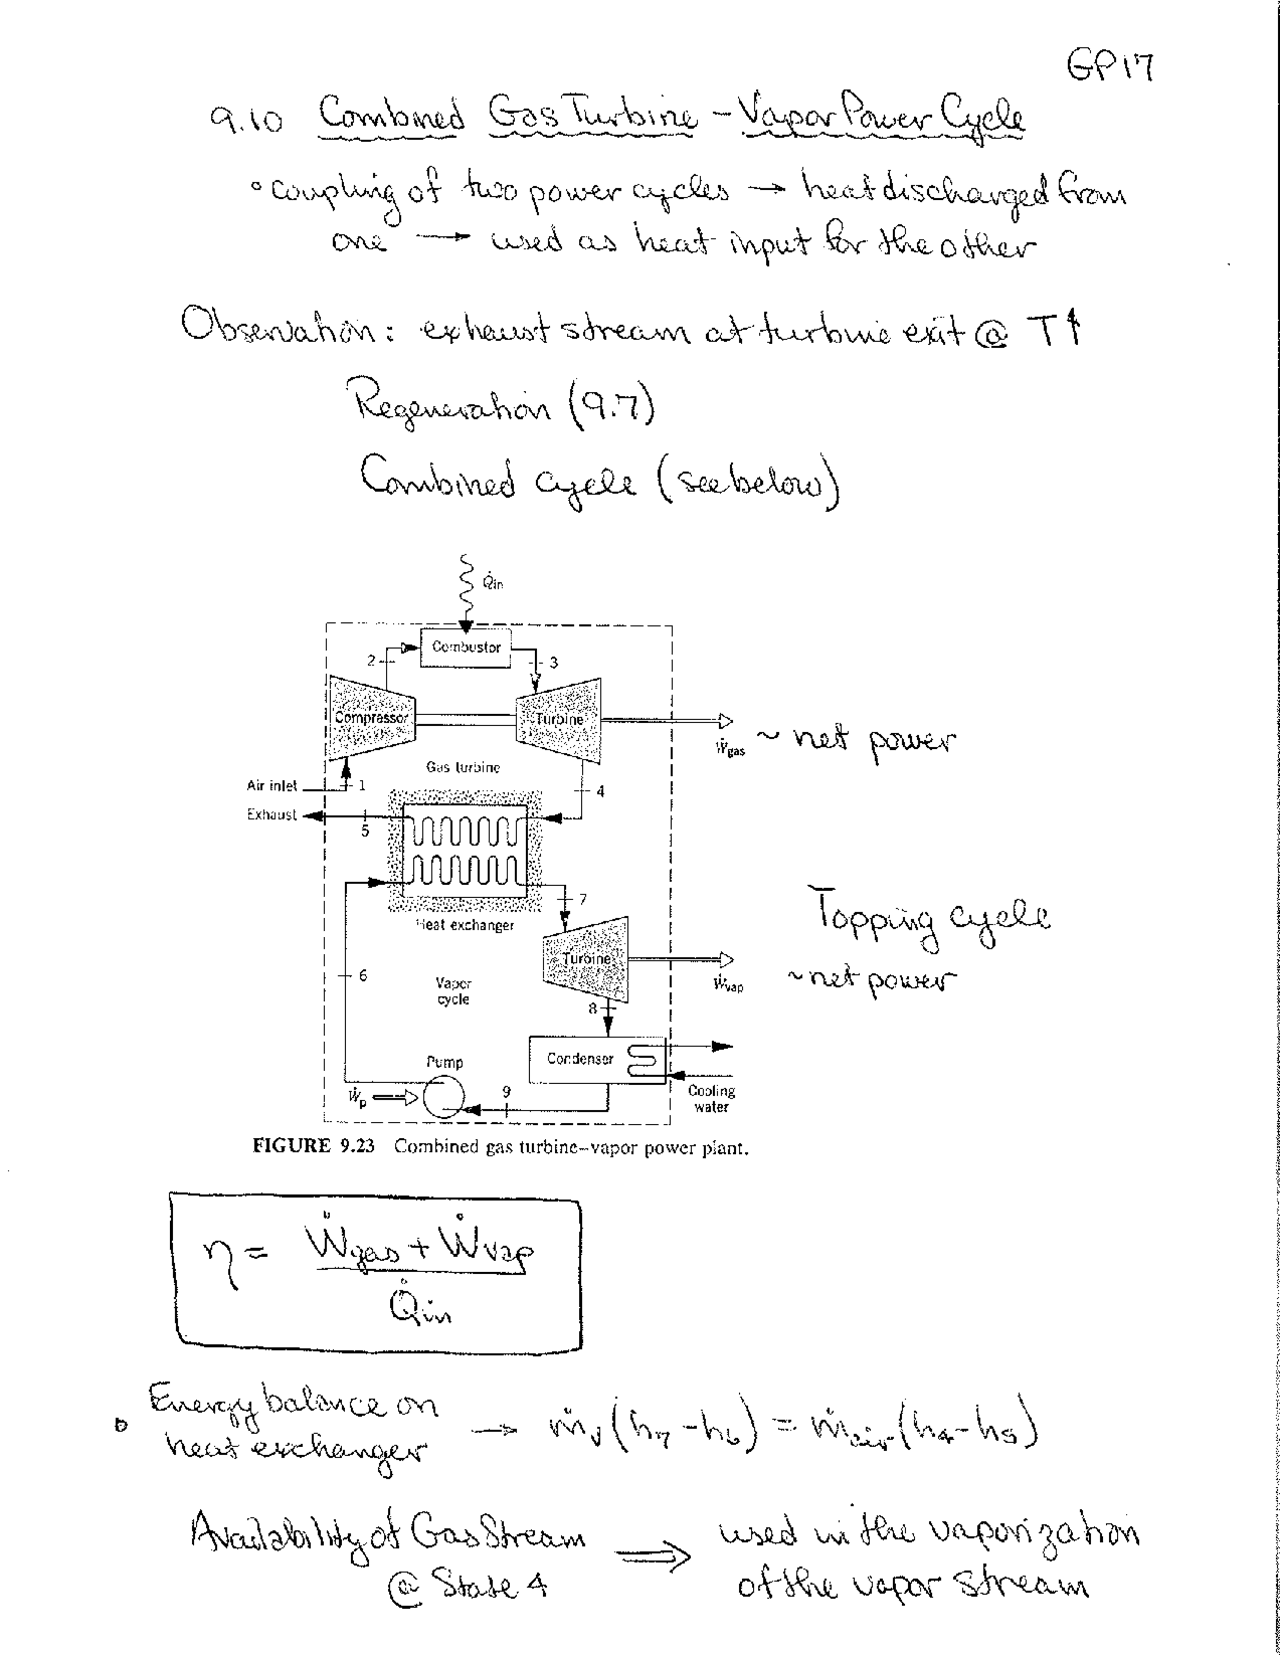 GP17
9.10 Combined Gas Turbine - Vapor Power Cycle
° coupling of two power cycles → heat discharged from
one → used as heat input for the other
Observation: exhaust stream at turbine exit @ T↑
Regeneration (9.7)
Combined cycle (see below)
Q̇in
Combustor
2
3
Compressor
Turbine
Ẇgas ~ net power
Gas turbine
Air inlet
1
4
Exhaust
5
7
Heat exchanger
Topping cycle
Turbine
6
Vapor
cycle
Ẇvap ~ net power
8
Condenser
Pump
Ẇp
9
Cooling
water
FIGURE 9.23 Combined gas turbine–vapor power plant.
η = (Ẇgas + Ẇvap) / Q̇in
° Energy balance on
heat exchanger → ṁv (h7 - h6) = ṁair (h4 - h5)
Availability of Gas Stream ⇒ used in the vaporization
@ State 4 of the vapor stream